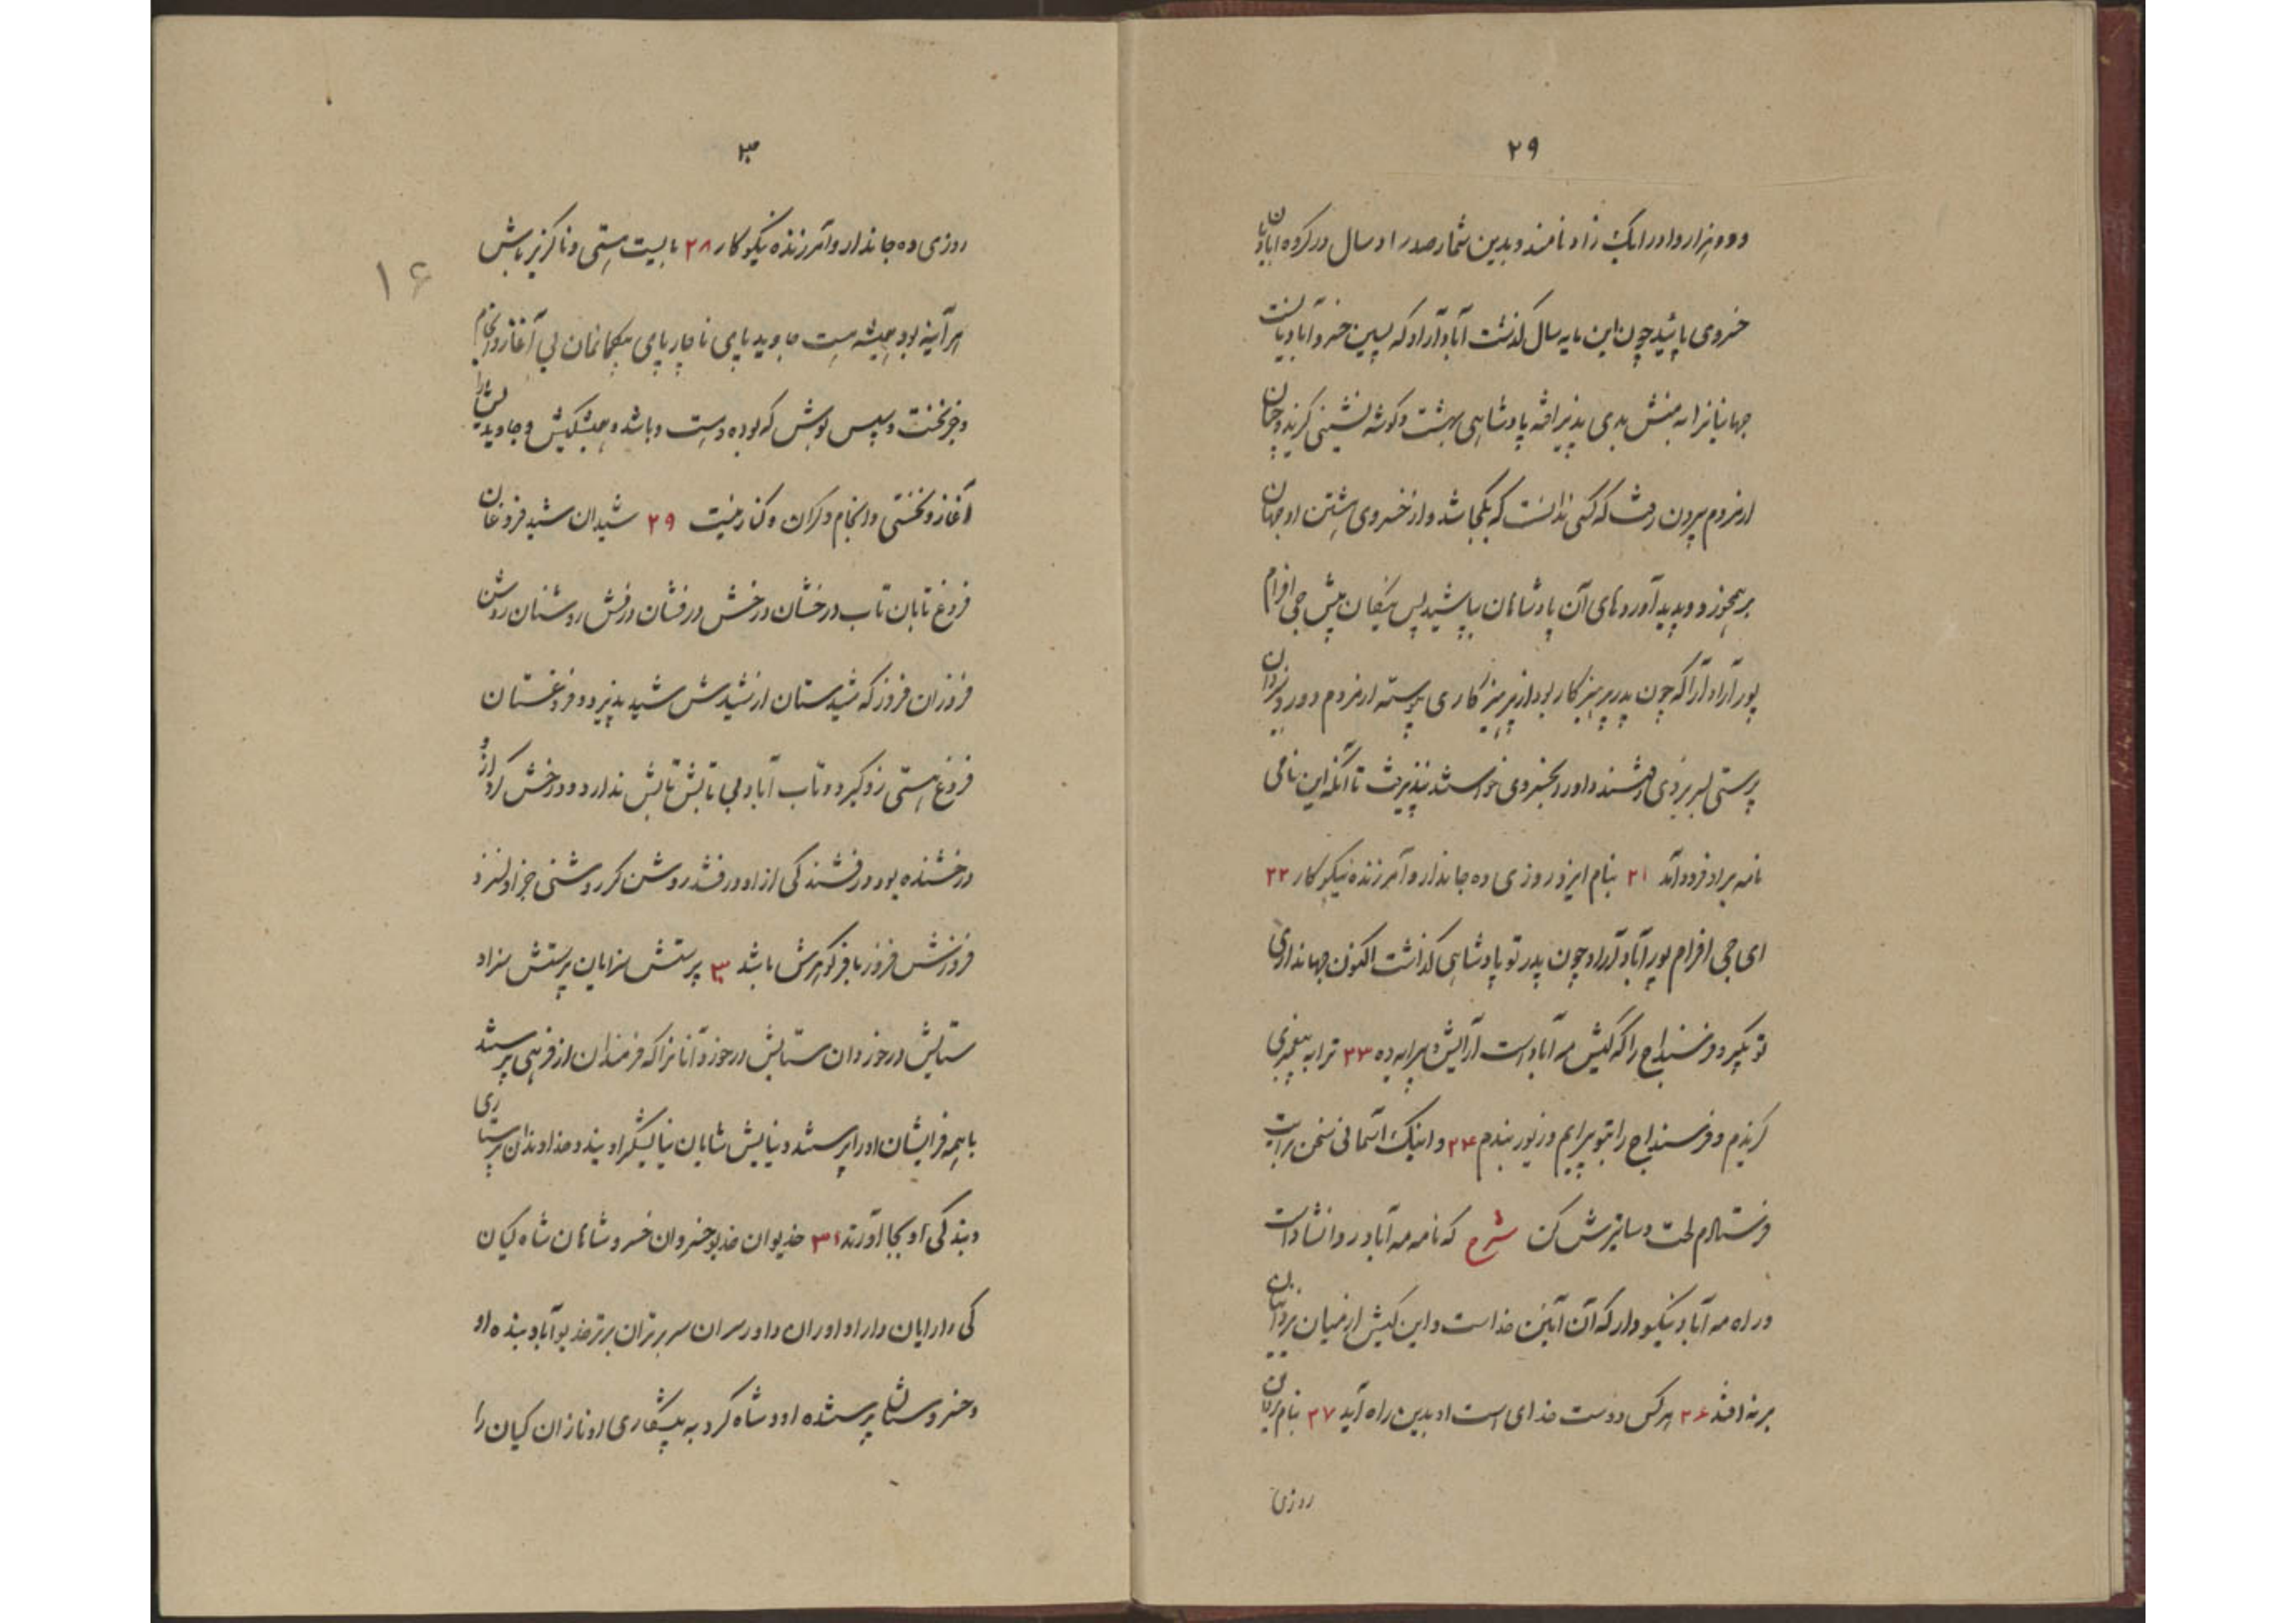 ۲۹
دو هزار واد را یک زاد نامند و بدین شمار صد زاد سال در گروه آبادیان
خسروی پائید چون این مایه سال گذشت آباد آراد که پسین خسرو آبادیانست
جهانیانرا به منش بدی پذیرا یافته پادشاهی بهشت و گوشه نشینی گزید و چنان
از مردم بیرون رفت که کسی ندانست که بکجا شد و از خسروی هشتن او جهان
بر هم خورد و پدید آوردهای آن پادشاهان بپاشید پس نیکان پیش جی افرام
پور آباد آراد که چون پدر پرهیزکار بود از پرهیزکاری پیوسته از مردم دور و یزدان
پرستی بسر بردی شدند و او را بخسروی خواستند نپذیرفت تا آنکه این نامی
نامه بر او فرود آمد ۲۱ بنام ایزد روزی ده جاندار و آمرزنده نیکوکار ۲۲
ای جی افرام پور آباد آراد چون پدر تو پادشاهی گذاشت اکنون جهانداری
تو بگیر و فرسنداج را که کیش مه آباد است آرایش و پیرایه ده ۲۳ ترا به پیغمبری
گزیدم و فرسنداج را بتو پیرایم و زیور بندم ۲۴ و اینک آسمانی سخن برایت
فرستادم لخت دساتیرش کن شرح که نامه مه آباد روانشاد است
در راه مه آباد نیکو دار که آن آیین خداست و این کیش از میان یزدانیان
بر نه افتد ۲۶ هر کس دوست خدای است او بدین راه آید ۲۷ بنام یزدان
روزی
۳۰
روزی ده جاندار و آمرزنده نیکوکار ۲۸ بایست هستی و ناگزیر باش
هر آینه بود همیشه هست جاوید پای ناچار پای بیگمانمان بی آغاز و انجام
و جز نخست و سپس بوش که بوده و هست و باشد و همیشگیش و جاویدیش را
آغاز و نخستی و انجام و کران و کنار نیست ۲۹ شیدان شید فروغان
فروغ تابان تاب درخشان درخش درفشان درفش روشنان روشن
فروزان فروز که شیدستان از شیدش شید پذیرد و فروغستان
فروغ هستی زو گیرد و تاب آباد بی تابش تابش ندارد و درخش کرد از و
درخشنده بود و درفشندگی از او درفشد روشن گر روشنی جز او نسزد
فروزش فروز با فر گوهرش باشد ۳۰ پرستش سزایان پرستش سزاد
ستایش درخوردان ستایش درخورد آنانرا که فرمندان از فرهی پرستند
با همه فر ایشان او را پرستند و نیایش شایان نیایشگر اویند و خداوندان پرستاری
و بندگی او بجا آورند ۳۱ خدیوان خدیو خسروان خسرو شاهان شاه کیان
کی دارایان دارا داوران داور سران سر برتران برتر خدیو آباد بنده او
و خسروستان پرستنده او و شاه گرد به پیشکاری او نازان کیان را
۱۶